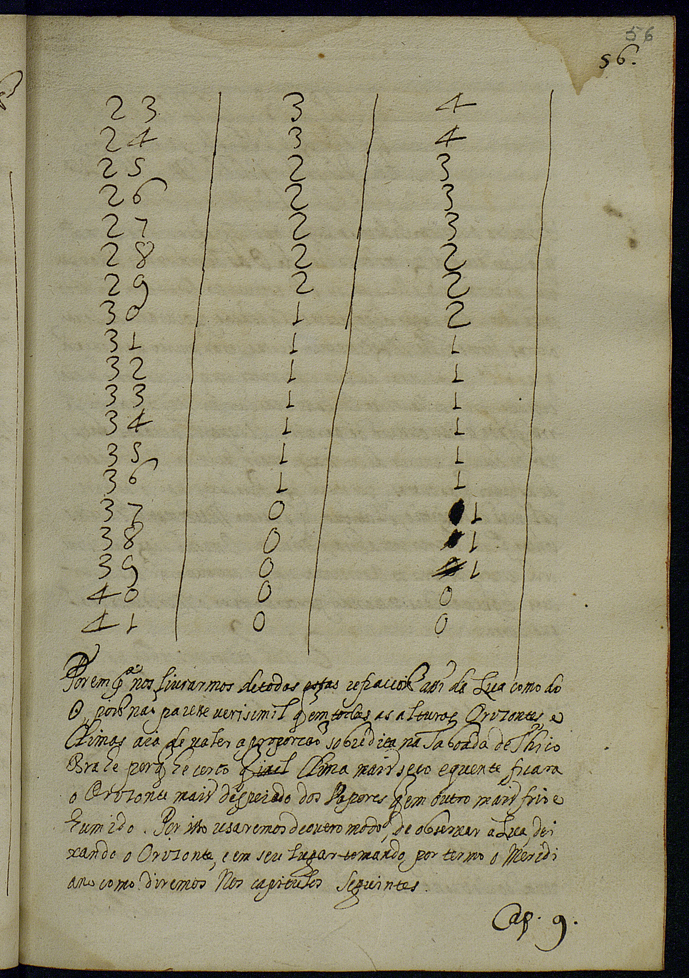 56
56.
23 3 4
24 3 4
25 2 3
26 2 3
27 2 3
28 2 2
29 2 2
30 1 2
31 1 1
32 1 1
33 1 1
34 1 1
35 1 1
36 1 1
37 0 1
38 0 1
39 0 1
40 0 0
41 0 0
Porem pª nos livrarmos de todas estas refracções assi da Lua como do
☉, pois não parece verisimil q em todas as alturas, Orizontes e
Climas aia de valer a proporção sobredita na Taboada de Thico
Brahe porq he certo q em Clima mais seco e quente ficara
o Orizonte mais despeiado dos Vapores q em outro mais frio e
humido. Por isto usaremos de outro modo de observar a Lua dei
xando o Orizonte, e em seu lugar tomando por termo o Meridi
ano como diremos Nos capitulos Seguintes.
Cap. 9.